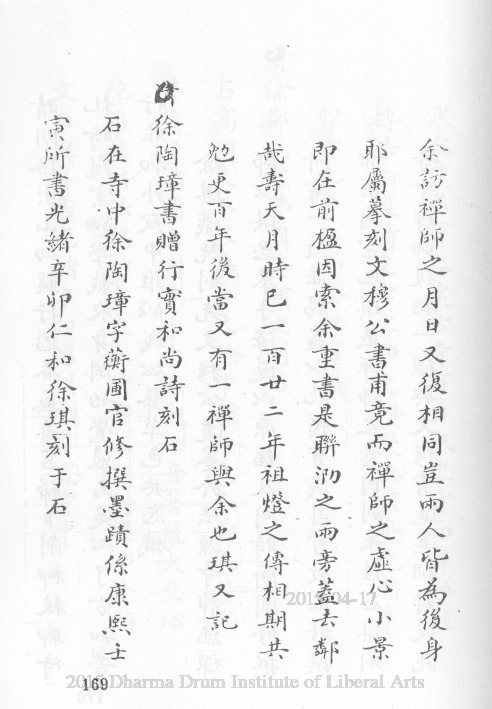 余訪禪師之月日又復相同豈兩人皆為後身
耶屬摹刻文穆公書甫竟而禪師之虛心小景
即在前楹因索余重書是聯泐之兩旁蓋去鄰
哉壽天月時已一百廿二年祖燈之傳相期共
勉更百年後當又有一禪師與余也琪又記
徐陶璋書贈行實和尚詩刻石
石在寺中徐陶璋字蘅圃官修撰墨蹟係康熙壬
寅所書光緒辛卯仁和徐琪刻于石
169
2019-04-17
Dharma Drum Institute of Liberal Arts